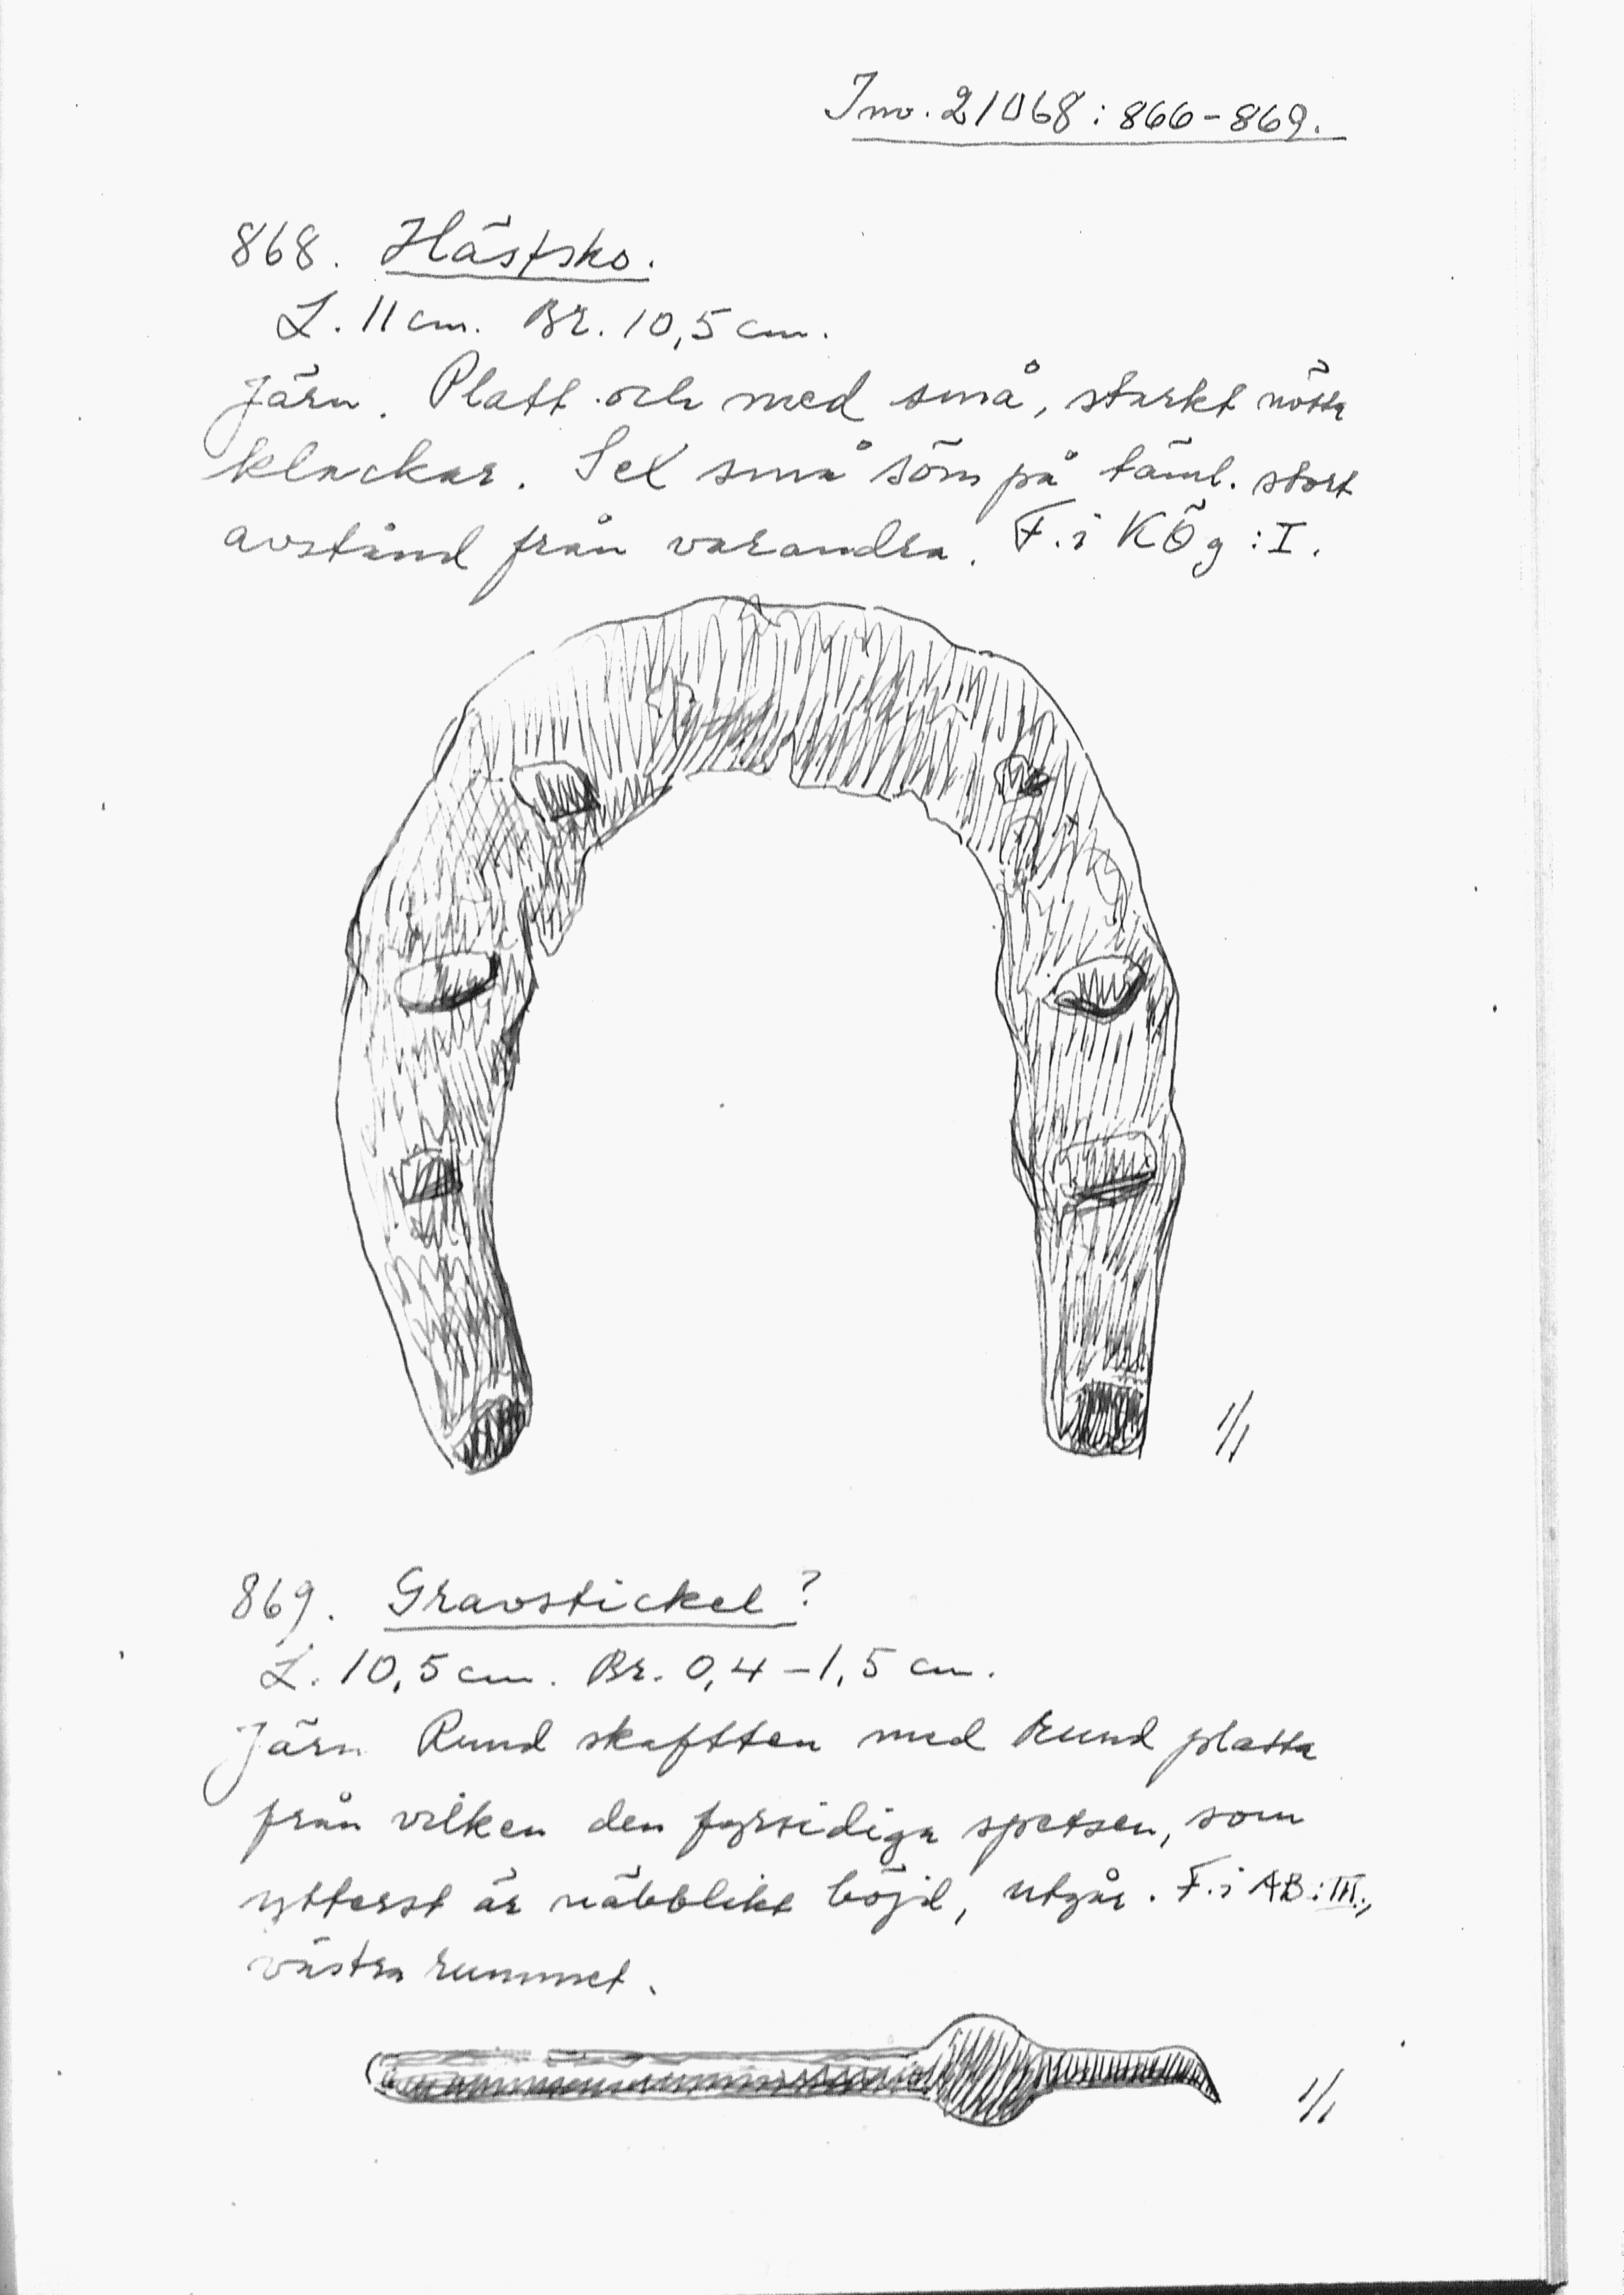 Inv. 21068: 866-869.
868. Hästsko.
L. 11 cm. Br. 10,5 cm.
Järn. Platt och med små, starkt nötta
klackar. Sex små söm på täml. stort
avstånd från varandra. F. i KÖg: I.
1/1
869. Gravstickel?
L. 10,5 cm. Br. 0,4-1,5 cm.
Järn Rund skaftten med rund platta
från vilken den fyrsidiga spetsen, som
ytterst är näbblikt böjd, utgår. F. i AB: III.,
västra rummet.
1/1